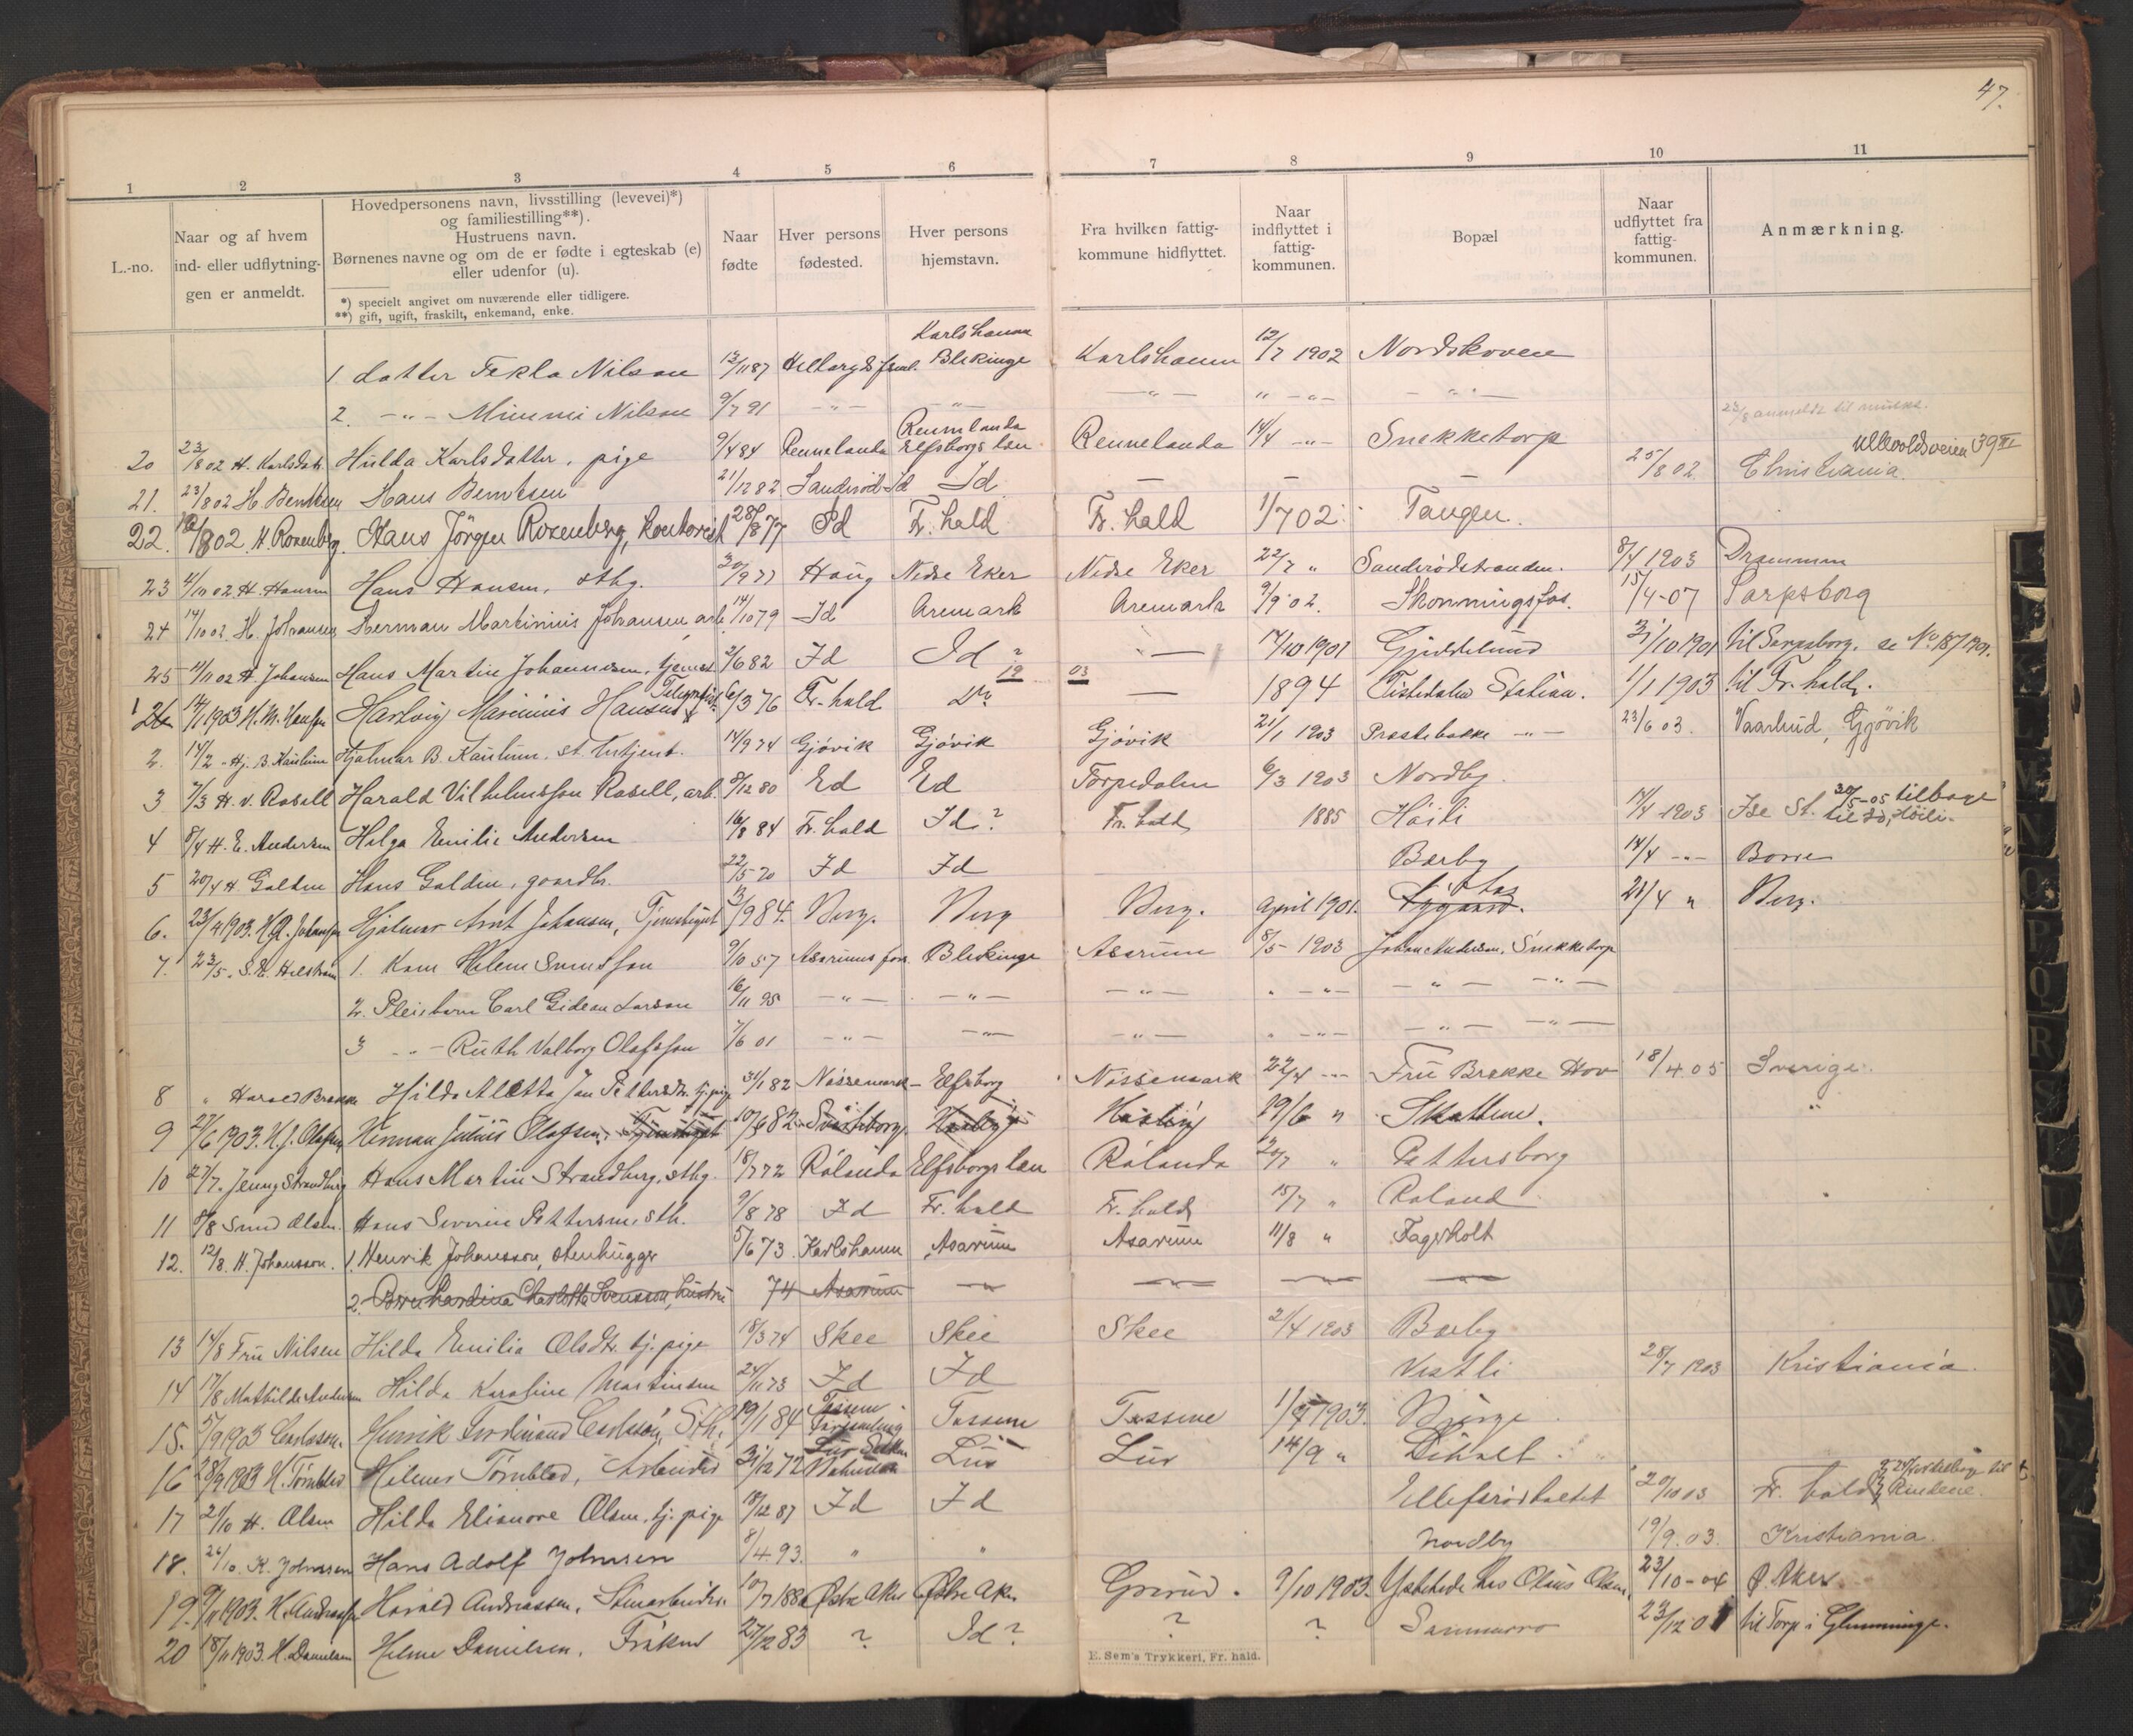 47.
1 2 3 4 5 6 7 8 9 10 11
L.-no.
Naar og af hvem ind- eller udflytningen er anmeldt.
Hovedpersonens navn, livsstilling (levevei)*)
og familiestilling**).
Hustruens navn.
Børnenes navne og om de er fødte i egteskab (e)
eller udenfor (u).
*) specielt angivet om nuværende eller tidligere.
**) gift, ugift, fraskilt, enkemand, enke.
Naar fødte
Hver persons fødested.
Hver persons hjemstavn.
Fra hvilken fattigkommune hidflyttet.
Naar indflyttet i fattigkommunen.
Bopæl
Naar udflyttet fra fattigkommunen.
Anmærkning.
1 datter Tekla Nilson 13/11 87 Karlshamn Blekinge Karlshamn 12/7 1902 Nordskoven
2 -"- Mimmi Nilson 9/7 91 -"- -"- -"- " -"- -"-
23/8 anmeldt til
20 23/8 02 H. Karlsdatr. Hulda Karlsdatter, pige 9/4 84 Rennelanda Rennelanda Elfsborgs len Rennelanda 14/4 -"- Snekketorp
21. 23/8 02 H. Berntsen Hans Berntsen 21/12 82 Sanderöd Id Id — — — 25/8 02 Christiania Ullevoldsveien 39 III
22. /8 02 H. Rosenberg. Hans Jörgen Rosenberg, kontorist 28/8 77 Id Fr. hald Fr. hald 1/7 02 Tangen.
23 4/10 02 H. Hansen Hans Hansen, sthg. 30/9 77 Haug Nedre Eker Nedre Eker 22/7 " Sanderödstranden. 8/4 1903 Drammen
24 14/10 02 H. Johansen Herman Martinius Johansen arb. 14/10 79 Id Aremark Aremark 9/9 02. Skonningsfos. 15/4-07 Sarpsborg
25 11/11 02 H. Johansen Hans Martin Johannesen, tjenest 2/6 82 Id Id ? — 14/10 1901 Gjeddelund 31/10 1901 til Sarpsborg. se No 187 1901.
19 03
1 26 14/1 1903 H. M. Hansen Hartvig Marinius Hansen Telegrafist 6/3 76 Fr. hald Do — 1894 Tistedalen Station. 1/1 1903 til Fr. hald.
2. 14/2 - Hj. B. Kaulum Hjalmar B. Kaulum, st. betjent. 14/9 74 Gjövik Gjövik Gjövik 21/1 1903 Præstebakke -"- 23/6 03. Vaarlund, Gjövik
3 7/3 H. V. Rosell Harald Vilhelmsson Rosell, arb. 9/12 80 Ed Ed Torpedalen 6/3 1903 Nordby.
4 8/4 H. E. Andersen Helga Emilie Andersen 16/8 84 Fr. hald Id. ? Fr. hald 1885 Höili 14/4 1903 Ise St. 30/5-05 tilbage til Id, Höili.
5 20/4 H. Galden Hans Galden, gaardbr. 22/5 70 Id Id Barby 14/4 -"- Borre
6. 23/4 1903. H. A. Johansen Hjalmar Arnt Johansen, Tjenestegut 12/9 84. Berg. Berg Berg. April 1901. 21/4 " Berg.
7. 23/5. S. H. Helstrøm 1. Kone Helene Svensson 9/10 57 Asarums for. Blekinge Asarum 8/5 1903 Johan Anderson, Snekketorp
2. Pleiebarn Carl Gideon Larson 16/11 95 -"- -"- -"- " -"- -"- -"-
3 -"- Ruth Valborg Olafsson 7/6 01 -"- -"- -"- " -"- -"- -"-
8 " Harald Brække Hilda Aletta Jan Pettersdtr. tj. pige 31/1 82 Nössemark Elfsborg Nössemark 22/4 -"- Fru Brække Hov 18/4 05 Sverige.
9 27/6 1903. H. J. Olafsen Herman Julius Olafsen, Tjenestegut 10/6 82 29/6 " Skatten. "
10 27/7. Jenny Strandberg Hans Martin Strandberg, sthg. 18/7 72 Rölanda Elfsborgs len Rölanda 20/7 " Pettersborg
11 8/8 Svend Olsen. Hans Severin Pettersen, sth. 9/8 78 Id Fr. hald Fr. hald 15/7 " Roland
12. 12/8. H. Johansson. 1. Henrik Johansson, stenhugger 5/6 73 Karlshamn Asarum Asarum 11/8 " Fagerholt
2. Bernhardina Charlotta Svensson, hustru 74 Asarum — — — —
13 14/8 Fru Nilsen Hilda Emilia Olsdtr. tj. pige 18/3 74 Skee Skee Skee 21/4 1903 Barby
14 17/8 Mathilde Andersen Hilda Karoline Martinsen 24/11 73 Id Id Vestli 28/7 1903 Kristiania.
15. 5/9 1903 Carlsson. Henrik Ferdinand Carlsson, Sth. 19/1 84 Tossene Forsamling Tossene Tossene 1/1903. Berge
16 28/9 1903 H. Törnblad Hilmer Törnblad, Arbeider 31/12 72 Lur Lur 14/9 "
17 21/10 H. Olsen Hilda Elionore Olsen, tj. pige 18/12 87 Id Id Ellefsrödholtet 20/10 03 Fr. hald tilbage til
18. 26/10. K. Johnsen Hans Adolf Johnsen 8/4. 93. " " Nordby 19/9. 03. Kristiania.
19. 9/11 1903. H. Andreassen Harald Andreassen, Stenarbeider 10/7 1880 Østre Aker Østre Aker Grorud. 9/10 1903. hos Olaus Olsen 23/10-04 Ø. Aker.
20 18/11 1903. H. Danielsen Helene Danielsen. Fröken 27/12 83 ? Id ? ? ? 23/12 0 til Torp i Glemminge.
E. Sem's Trykkeri, Fr. hald.